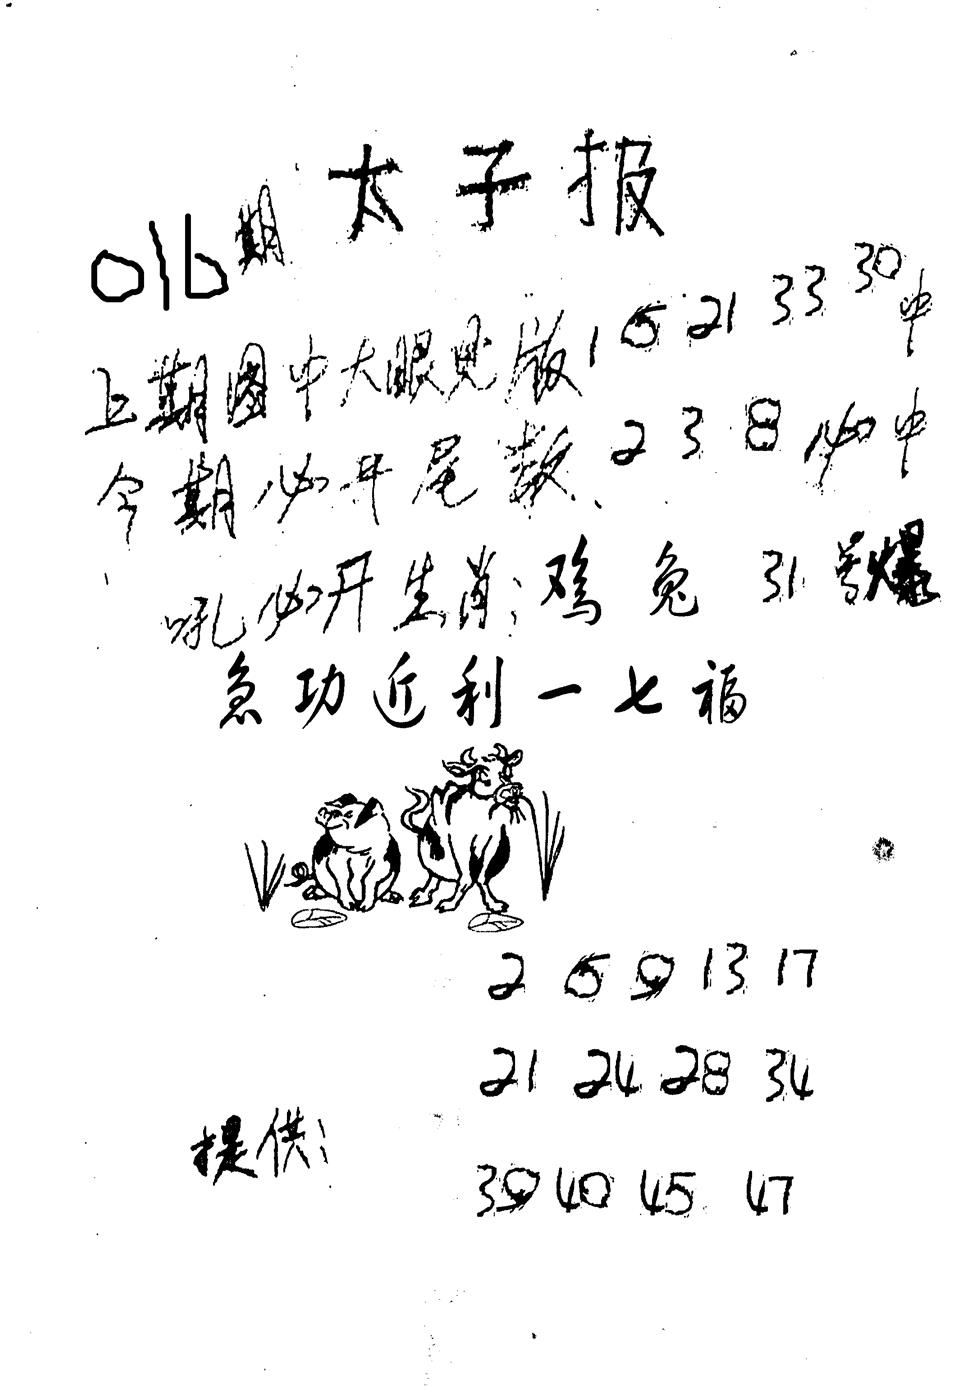 太子报
016期
上期图中大眼见版1 6 21 33 30中
今期必开尾数、2 3 8必中
吼必开生肖:鸡兔 31号爆
急功近利一七福
2 6 9 13 17
21 24 28 34
提供:
39 40 45 47